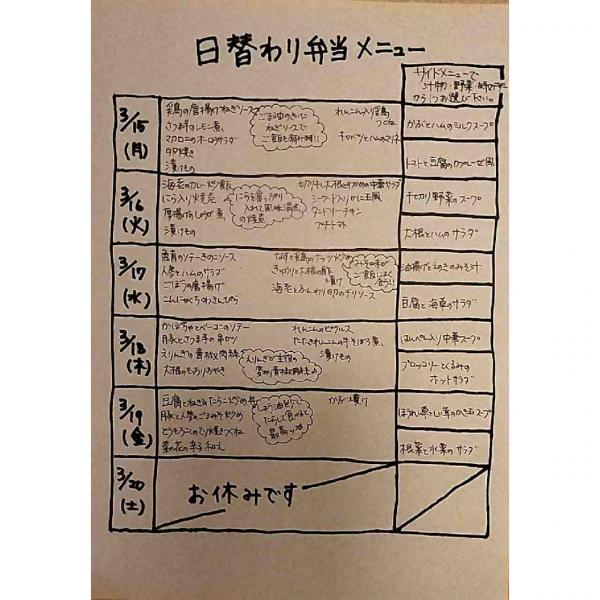 日替わり弁当メニュー
サイドメニューで
汁物・野菜・
から1つお選び下さい。
3/15
(月)
鶏の唐揚げねぎソース
さつま芋のレモン煮
マカロニのオーロラサラダ
卵焼き
漬けもの
ごま油のきいた
ねぎソースで
ご飯も
れんこん入り鶏
つくね
キャベツとハムのマリネ
かぶとハムのミルクスープ
トマトと豆腐のカプレーゼ風
3/16
(火)
海老のカレー炒飯
にら入り焼売
厚揚げのしょうが煮
漬けもの
にらを
入れて風味満点
の焼売
切り干し大根とわかめの中華サラダ
シーフード入りかに玉風
タンドリーチキン
プチトマト
千切り野菜のスープ
大根とハムのサラダ
3/17
(水)
のソテーきのこソース
人参とハムのサラダ
ごぼうの唐揚げ
こんにゃくちくわきんぴら
なすと鶏のナッツ炒め
きゅうりと大根の
漬け
海老とふんわり卵のチリソース
みその味が
ご飯に
合う!!
油揚げとえのきのみそ汁
豆腐と海草のサラダ
3/18
(木)
かぼちゃとベーコンのソテー
豚とさつま芋の
えりんぎの青椒肉絲
大根のもちもちおやき
えりんぎが主役の
青椒肉絲♪
れんこんのピクルス
たたきれんこんの牛そぼろ煮
漬けもの
はんぺん入り中華スープ
ブロッコリーとくるみの
ホットサラダ
3/19
(金)
豆腐とねぎの
豚と人参のごまみそ炒め
とうもろこしの照り焼つくね
菜の花の辛子和え
たらして食べると
最高
かぶ漬け
ほうれん草としいたけのかき玉スープ
根菜と水菜のサラダ
3/20
(土)
お休みです